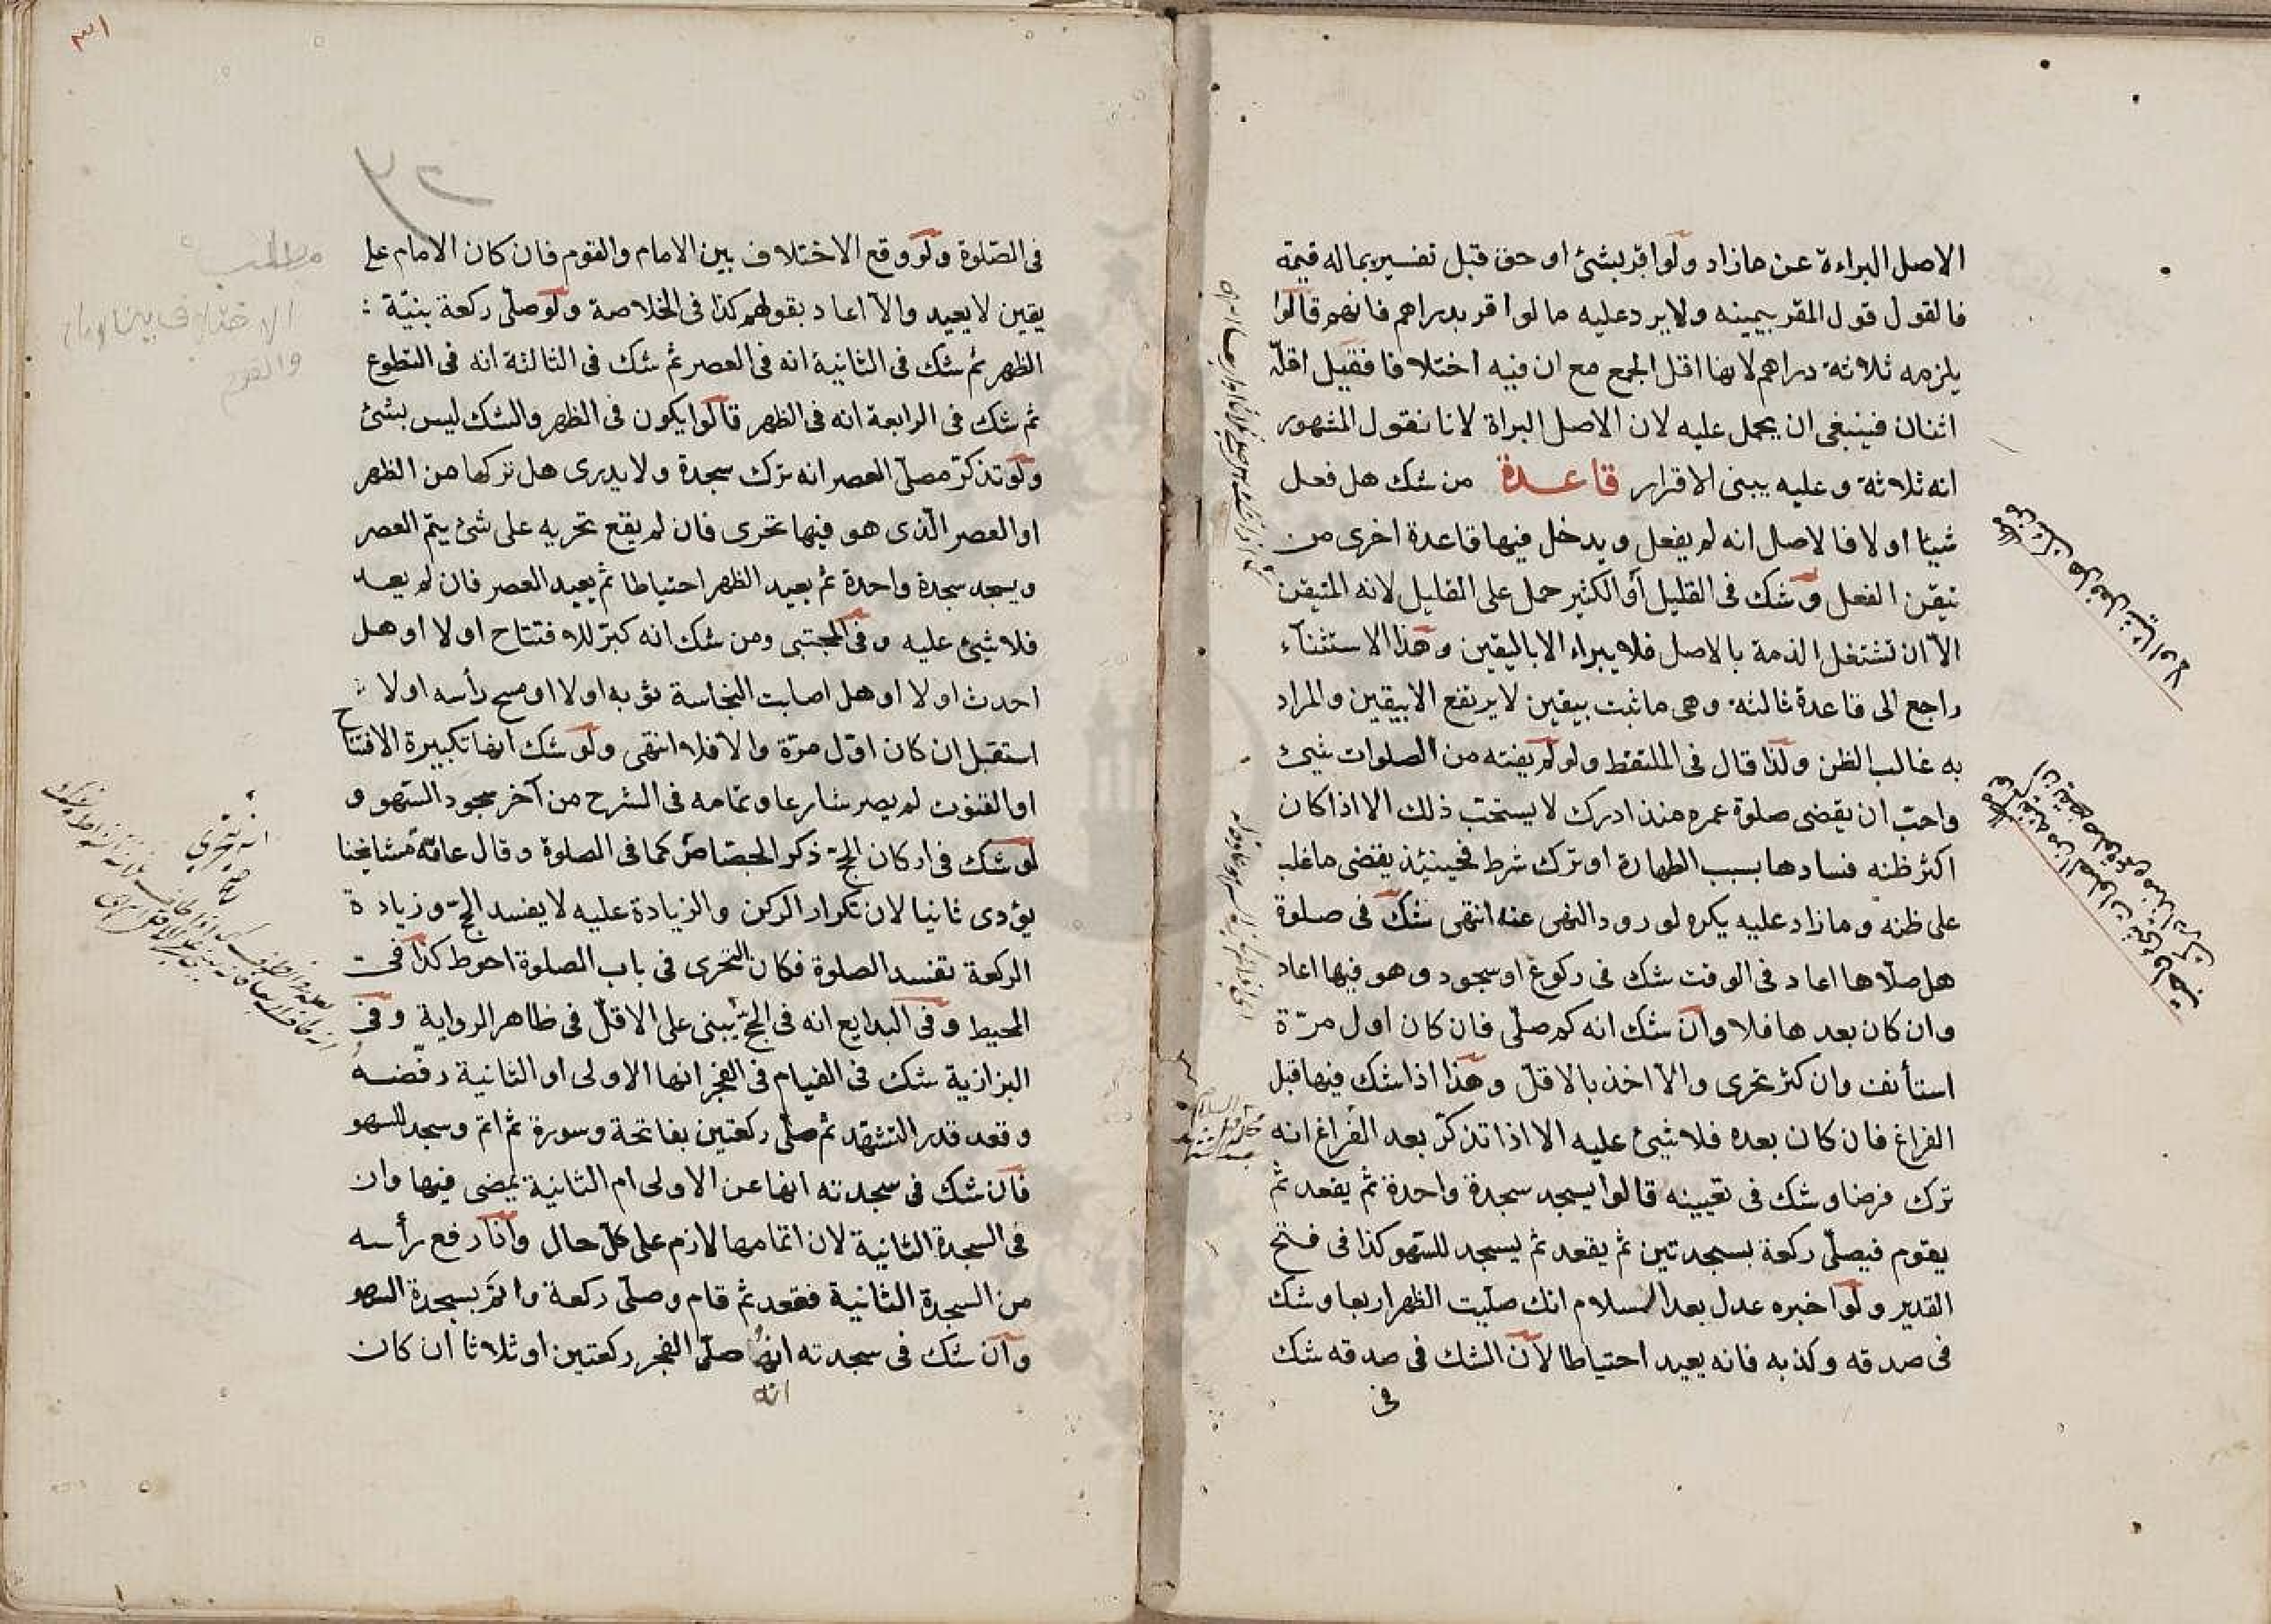 الاصل البراءة عن مازاد ولو اقر بشئ او حق قبل تفسيره بماله قيمة
فالقول قول المقر بيمينه ولا يرد عليه ما لو اقر بدراهم فانهم قالوا
يلزمه ثلاثة دراهم لانها اقل الجمع مع ان فيه اختلافا فقيل اقله
اثنان فينبغى ان يحمل عليه لان الاصل البراة لانا نقول المشهور
انه ثلاثة وعليه يبنى الاقرار قاعدة من شك هل فعل
شيئا اولا فالاصل انه لم يفعل ويدخل فيها قاعدة اخرى من
تيقن الفعل وشك فى القليل أو الكثير حمل على القليل لانه المتيقن
الا ان تشتغل الذمة بالاصل فلا يبراء الا باليقين وهذا الاستثنآء
راجع الى قاعدة ثالثة وهى ما ثبت بيقين لا يرتفع الا بيقين والمراد
به غالب الظن ولذا قال فى الملتقط ولو لم يفته من الصلوات شيئ
واحب ان يقضى صلوة عمره منذ ادرك لا يستحب ذلك الا اذا كان
اكثر ظنه فسادها بسبب الطهارة او ترك شرط فحينئذ يقضى ما غلب
على ظنه وما زاد عليه يكره لورود النهى عنه انتهى شك فى صلوة
هل صلاها اعاد فى الوقت شك فى ركوع او سجود وهو فيها اعاد
وان كان بعدها فلا وان شك انه كم صلى فان كان اول مرة
استأنف وان كثر تحرى والا اخذ بالاقل وهذا اذا شك فيها قبل
الفراغ فان كان بعده فلا شيئ عليه الا اذا تذكر بعد الفراغ انه
ترك فرضا وشك فى تعيينه قالوا يسجد سجدة واحدة ثم يقعد ثم
يقوم فيصلى ركعة بسجدتين ثم يقعد ثم يسجد للسهو كذا فى فتح
القدير ولو اخبره عدل بعد السلام انك صليت الظهر اربعا وشك
فى صدقه وكذبه فانه يعيد احتياطا لان الشك فى صدقه شك
فى
من شك هل فعل شيئا اولا
٣١
فى الصلوة ولو وقع الاختلاف بين الامام والقوم فان كان الامام على
يقين لا يعيد والا اعاد بقولهم كذا فى الخلاصة ولو صلى ركعة بنية
الظهر ثم شك فى الثانية انه فى العصر ثم شك فى الثالثة انه فى التطوع
ثم شك فى الرابعة انه فى الظهر قالوا يكون فى الظهر والشك ليس بشئ
ولو تذكر مصلى العصر انه ترك سجدة ولا يدرى هل تركها من الظهر
او العصر الذى هو فيها تحرى فان لم يقع تحريه على شئ يتم العصر
ويسجد سجدة واحدة ثم يعيد الظهر احتياطا ثم يعيد العصر فان لم يعد
فلا شيئ عليه وفى المجتبى ومن شك انه كبر للافتتاح اولا او هل
احدث اولا او هل اصابت النجاسة ثوبه اولا او مسح رأسه اولا
استقبل ان كان اول مرة والا فلا انتهى ولو شك انها تكبيرة الافتتاح
او القنوت لم يصر شارعا وتمامه فى الشرح من آخر سجود السهو و
لو شك فى اركان الحج ذكر الجصاص كما فى الصلوة وقال عامة مشايخنا
يؤدى ثانيا لان تكرار الركن والزيادة عليه لا يفسد الحج وزيادة
الركعة تفسد الصلوة فكان التحرى فى باب الصلوة احوط كذا فى
المحيط وفى البدايع انه فى الحج يبنى على الاقل فى ظاهر الرواية وفى
البزازية شك فى القيام فى الفجر انها الاولى او الثانية رفضه
وقعد قدر التشهد ثم صلى ركعتين بفاتحة وسورة ثم اتم وسجد للسهو
فان شك فى سجدته انها عن الاولى ام الثانية يمضى فيها وان
فى السجدة الثانية لان اتمامها لازم على كل حال واذا رفع رأسه
من السجدة الثانية فقعد ثم قام وصلى ركعة واتم بسجدة السهو
وان شك فى سجدته انه صلى الفجر ركعتين او ثلاثا ان كان
انه
مطلب
الاختلاف بين الامام
والقوم